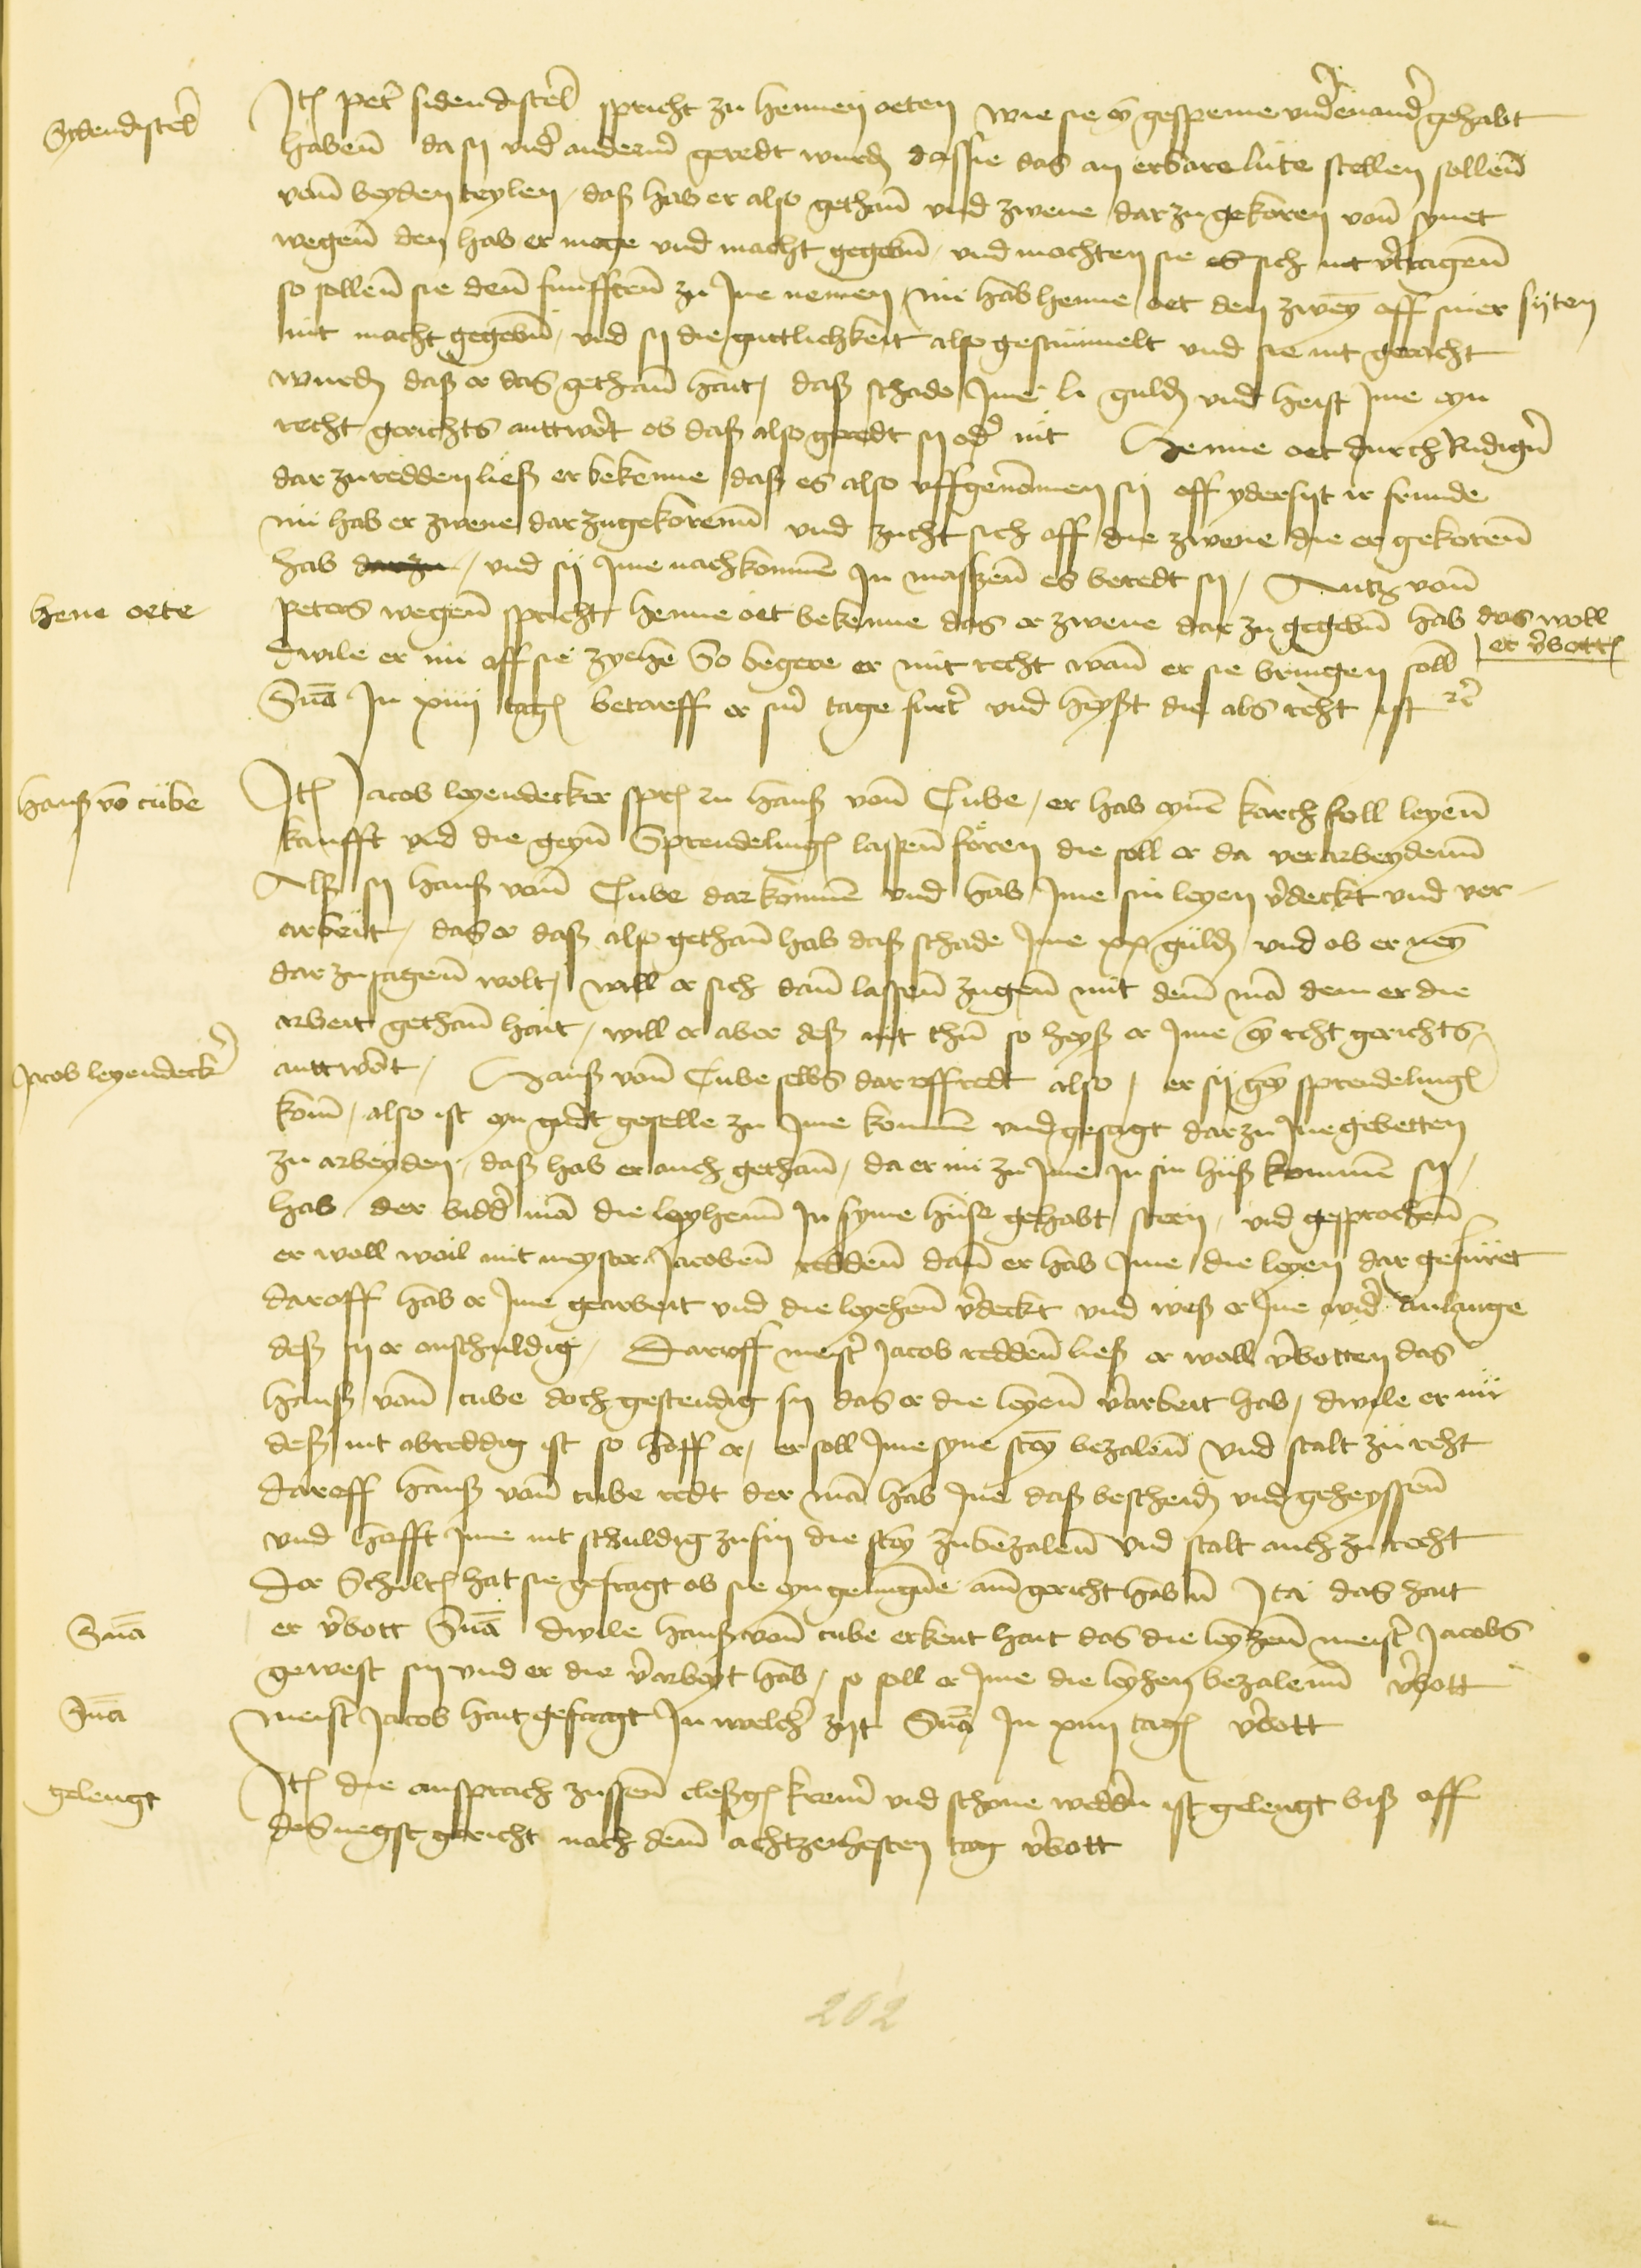 Sydendistel
Itē peter sidendistel spricht zu hennen oeten wie sie ey gespenne vnderenander gehabt
habenn da sy vnder anderm geredt wurdē dassie das an erbare lute stellen sollenn
vonn beyden teylen, daß hab er also gethann vnd zwene dar zu gekoren vonn synet
wegenn den hab er moge vnd macht gegebn, vnd mochten sie es sich nit v̉tragenn
so sollenn sie denn funfften zu Ine nemen, nu hab henne oet den zweyē off siner syten
nit macht gegebn, vnd sy die guttlichkeit also gestummelt vnd sie nit geracht
wurdē daß er das gethann hait, daß schade Ime li guldē vnd heist Ime eyn
recht gerichts anttwort ob daß also geredt sy oder nit Henne oet durch Rudigern
dar zu redden ließ er bekenne daß es also vffgenommen sy off ydersyt ir frunde
nu hab er zwene dar zu gekorenn vnd zucht sich off die zwene die er gekorenn
hab dar zu, vnd sy Ime nachkommen In maßenn es beredt sy, Antz vonn
hene oete
peters wegenn spricht, henne oet bekenne das er zwene dar zu gegebn hab das woll
er v̉bottē
dwile er nu off sie zyehe So begere er mit recht wann er sie bringen soll
Sña In xiiii tagē betarff er sin̉ tage furter vnd heyßt die als reht ist rc̉
hanß vō cube
Itē Jacob leyendecker sprē zu hanß vonn Cube, er hab eynē karch foll leyenn
kaufft vnd die geyn̄ Sprendelingē lassenn fören die soll er da verarbeydenn
Als sy hanß vonn Cube dar kommen vnd hab Ime sin leyen v̉deckt vnd ver-
arbeit, das er daß also gethann hab daß schade Ime xx guldē vnd ob er neyn
dar zu sagenn wolt, woll er sich dann lassenn zugenn mit dem mā dem er die
arbeit gethann hait, will er aber deß nit thun̄ so heyß er Ime ey reht gerichts
Jacob leyendecker
anttwort, Hanß vonn Cube selbs dar offredt also, er sy gey sprendelingē
kom̄, also ist eyn gudt geselle zu Ime kommen vnd gesagt dar zu Ine gebetten
zu arbeyden, daß hab er auch gethann, da er nu zu Ime In sin huß kommen sy,
hab der bidder mā die leyhenn In syme huse gehabt steen, vnd gesprochenn
er woll woil mit meyster Jacobenn reddenn dann er hab Ime die leyen dar gefuret
daroff hab er Ime gearbeit vnd die leyhenn v̉deckt vnd weß er Ine wider anlange
deß sy er onschuldig, Daruff meister Jacob reddenn ließ er woll v̉botten das
hanß vonn cube doch gestendig sy das er die leyenn v̉arbeit hab, dwile er nu
deß nit abreddig ist so hoff er, er soll Ime syne stey bezalenn vnd stalt zu reht
daroff hanß vonn cube redt der mā hab Ine daß bescheidē vnd geheyssenn
vnd hofft Ime nit schuldig zu sin die stey zu bezalenn vnd stalt auch zu recht
Der Schultē hat sie gefragt ob sie eyn genugūe am gericht habn Ita das hait
Sña
er v̉bott Sña dwile hanß vonn cube erkent hait das die leyhenn meister Jacobs
gewest sin vnd er die v̉arbeyt hab, so soll er Ime die leyhen bezalenn v̉bott
Sña
meister Jacob hait gefragt In welcher zyt Sña In xiiii tagē v̉bott
gelengt
Itē die ansprach zussenn cleßgē kremer vnd schone weddern ist gelengt biß off
das negst gericht nach dem achtzehesten tag v̉bott
202